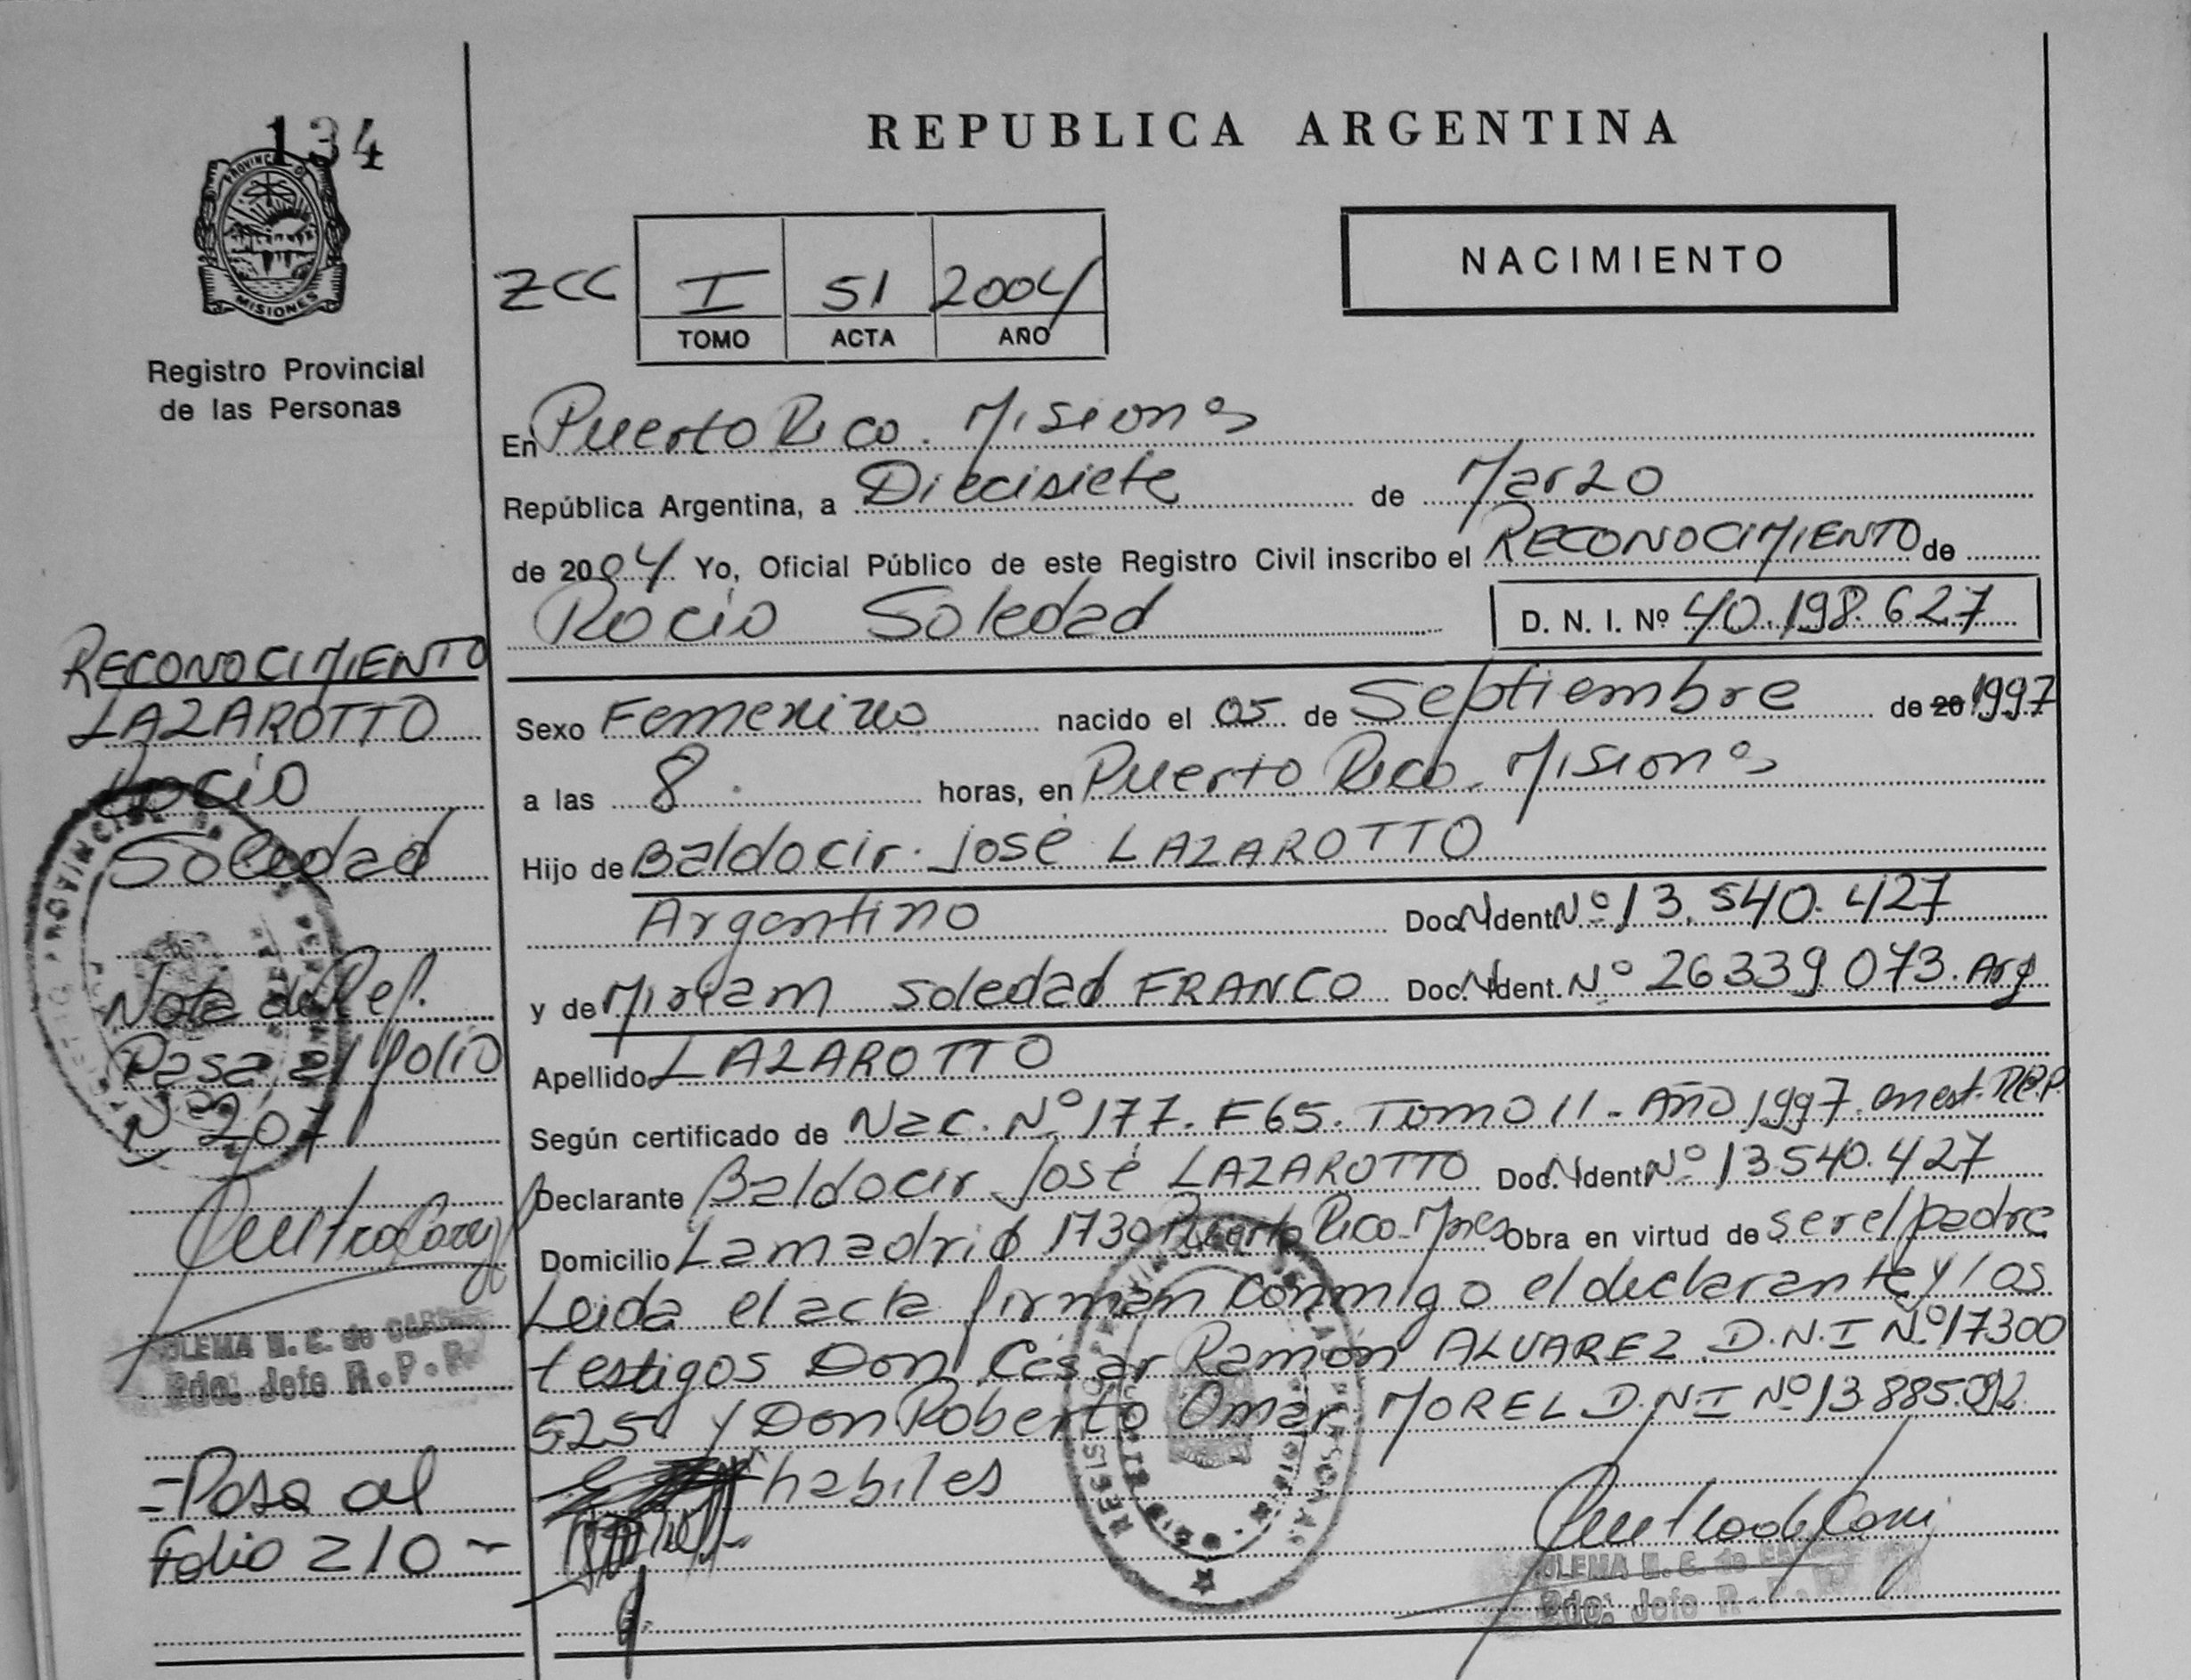 134
PROVINCIA DE
MISIONES
Registro Provincial
de las Personas
REPUBLICA ARGENTINA
NACIMIENTO
ZCC I 51 2004
TOMO ACTA AÑO
En Puerto Rico. Misiones
República Argentina, a Diecisiete de Marzo
de 2004 Yo, Oficial Público de este Registro Civil inscribo el RECONOCIMIENTO de
Rocio Soledad D. N. I. Nº 40.198.627
Sexo Femenino nacido el 05 de Septiembre de 20 1997
a las 8. horas, en Puerto Rico. Misiones
Hijo de Baldocir José LAZAROTTO
Argentino Doc. Ident. Nº 13.540.427
y de Miriam Soledad FRANCO Doc. Ident. Nº 26339073. Arg
Apellido LAZAROTTO
Según certificado de Nac. Nº 177. F65. Tomo II - Año 1997. en est. R.P.P.
Declarante Baldocir José LAZAROTTO Doc. Ident. Nº 13540.427
Domicilio Lamadrid 1730 Puerto Rico - Mnes Obra en virtud de ser el padre
Leida el acta firman conmigo el declarante y los
testigos Don César Ramón ALVAREZ D.N.I Nº 17300
525 y Don Roberto Omar MOREL D.N.I Nº 13.885.092
habiles
RECONOCIMIENTO
LAZAROTTO
Rocio
Soledad
Nota de Ref.
Pasa al folio
Nº 207
ZULEMA N. C. de
Pdo: Jefe R.P.P.
= Pasa al
folio 210 ~
ZULEMA N. C. de
Pdo: Jefe R.P.P.